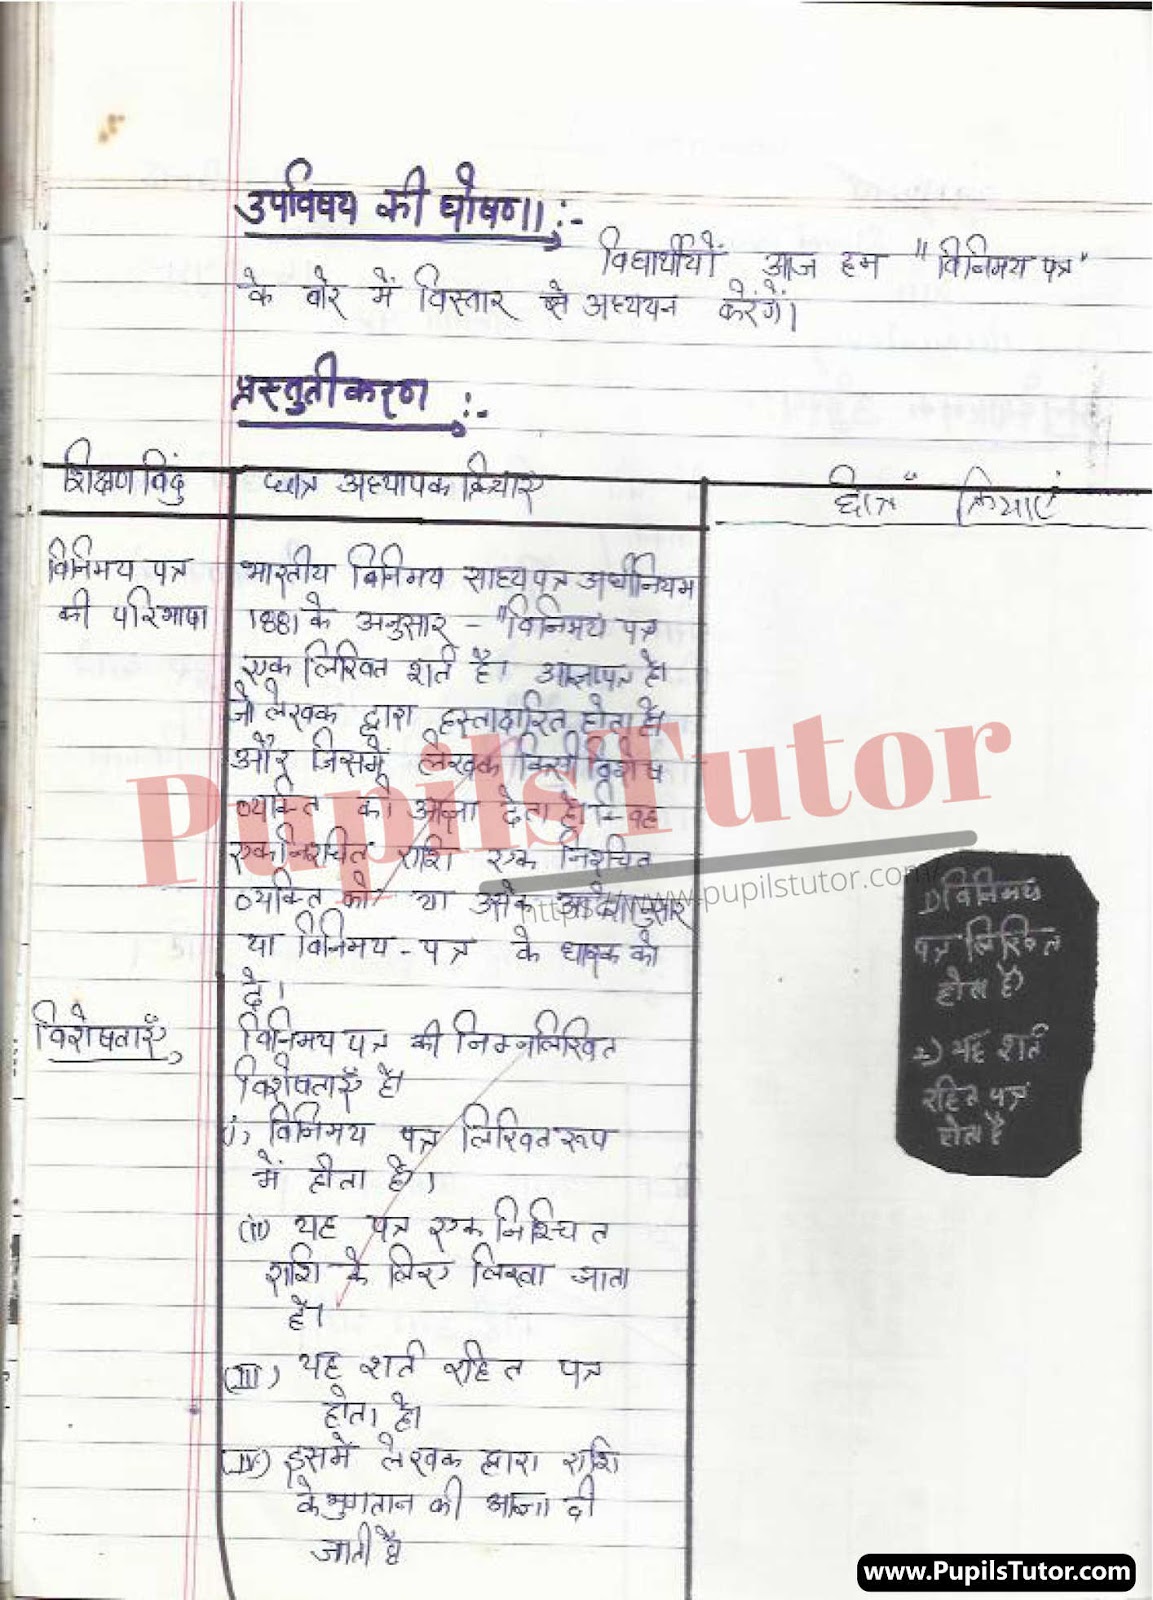 उपविषय की घोषणा :-
विद्यार्थीयों आज हम "विनिमय पत्र"
के बारे में विस्तार से अध्ययन करेंगें।
प्रस्तुतीकरण :-
शिक्षण बिंदु
छात्र अध्यापक क्रियाएं
छात्र क्रियाएं
विनिमय पत्र
की परिभाषा
भारतीय विनिमय साध्यपत्र अधिनियम
1881 के अनुसार - "विनिमय पत्र
एक लिखित शर्त है। आज्ञापत्र है।
जो लेखक द्वारा हस्ताक्षरित होता है।
और जिसमें लेखक किसी विशेष
व्यक्ति को आज्ञा देता है। कि वह
एक निश्चित राशि एक निश्चित
व्यक्ति को या उसके आदेशानुसार
या विनिमय - पत्र के धारक को
दे।
विशेषताएँ
विनिमय पत्र की निम्नलिखित
विशेषताएँ है।
(i) विनिमय पत्र लिखित रूप
में होता है।
(ii) यह पत्र एक निश्चित
राशि के लिए लिखा जाता
है।
(III) यह शर्त रहित पत्र
होता है।
(IV) इसमें लेखक द्वारा राशि
के भुगतान की आज्ञा दी
जाती है
1) विनिमय
पत्र लिखित
होता है
2) यह शर्त
रहित पत्र
होता है
PupilsTutor
http://www.pupilstutor.com/
www.PupilsTutor.com